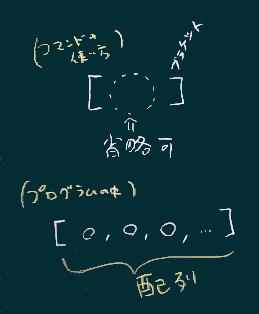 (コマンドの
使い方)
ブラケット
[ ]
省略可
(プログラムの中)
[ 0, 0, 0, … ]
配列